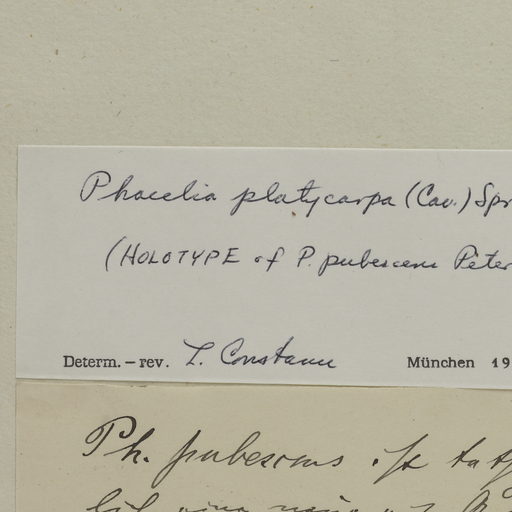 Phacelia platycarpa (Cav.) Spr
(HOLOTYPE of P. pubescens Peter
Determ. – rev. L. Constance München 19
Ph. pubescens ist